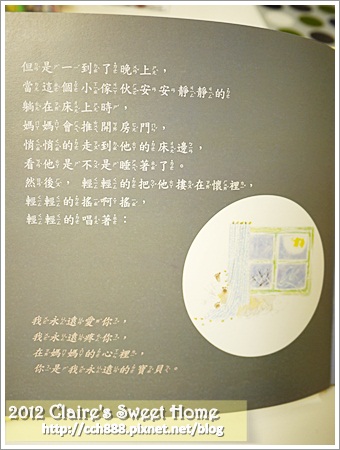 但是一到了晚上，
當這個小傢伙安安靜靜的
躺在床上時，
媽媽會推開房門，
悄悄的走到他的床邊，
看他是不是睡著了。
然後，輕輕的把他摟在懷裡，
輕輕的搖啊搖，
輕輕的唱著：
我永遠愛你，
我永遠疼你，
在媽媽的心裡，
你是我永遠的寶貝。
2012 Claire's Sweet Home
http://cch888.pixnet.net/blog